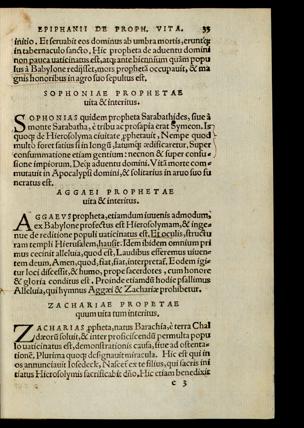 EPIPHANII DE PROPH. VITA. 35
initio. Et seruabit eos dominus ab umbra mortis, eruntq́;
in tabernaculo sancto. Hic propheta de aduentu domini
non pauca uaticinatus est, atq; ante biennium quàm popu
lus à Babylone redijsset, mors prophetā occupauit, & ma
gnis honoribus in agro suo sepultus est.
SOPHONIAE PROPHETAE
uita & interitus.
SOPHONIAS quidem propheta Sarabathides, siue à
monte Sarabatha, è tribu ac prosapia erat Symeon. Is
quoq; de Hierosolyma ciuitate prophetauit, Nempe quod
multo foret satius si in longū, latumq́; ædificaretur. Super
consummatione etiam gentium: necnon & super confu
sione impiorum. Deq́; aduentu domini. Vitā morte com
mutauit in Apocalypsi domini, & solitarius in aruo suo fu
neratus est.
AGGAEI PROPHETAE
uita & interitus.
AGGAEVS propheta, etiamdum iuuenis admodum,
ex Babylone profectus est Hierosolymam, & inge
nue de reditione populi uaticinatus est. Et oculis, structu
ram templi Hierusalem, hausit. Idem ibidem omnium pri
mus cecinit alleluia, quod est, Laudibus efferemus uiuen-
tem deum, Amen, quod, fiat, fiat, interpretař. Eodem igi-
tur loci discessit, & humo, prope sacerdotes, cum honore
& gloria conditus est. Proinde etiamdū hodie psallimus
Alleluia, qui hymnus Aggæi & Zachariæ prohibetur.
ZACHARIAE PROPETAE
quum uita tum interitus.
ZACHARIAS ꝓpheta, natus Barachia, è terra Chal
dæorū soluit, & inter proficiscendū permulta popu
lo uaticinatus est, demonstrationis causa, siue ad ostenta-
tionē, Plurima quoq; designauit miracula. Hic est qui in
os annunciauit Iosedeck, Nascet̄ ex te filius, qui sacris ini
tiatus Hierosolymis sacrificabit dn̄o. Hic etiam benedixit
c 3